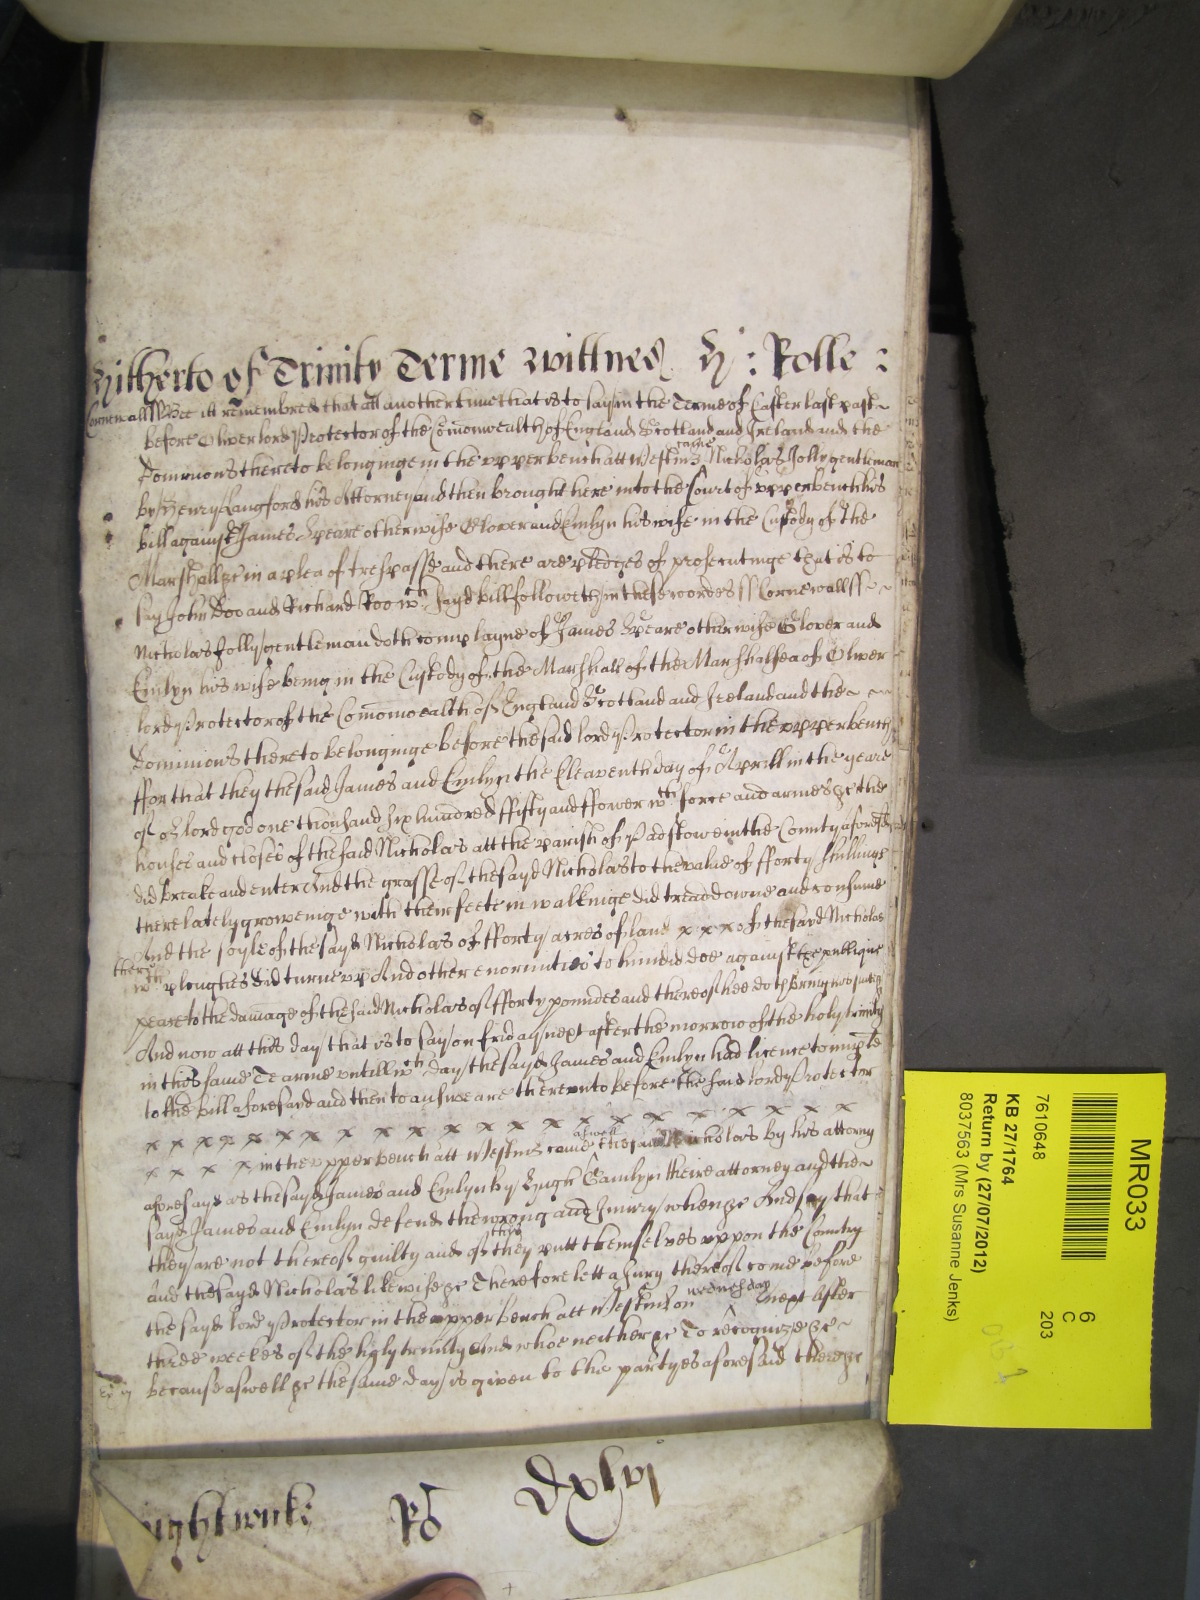 Hitherto of Trinity Terme Wittnes H : Rolle :
Cornewall ss Bee itt remembred that att another time that is to say in the Terme of Easter last past
before Oliver lord Protector of the Comonwealth of England Scotland and Ireland and the
Dominions thereto belonginge in the upper bench att Westmr came Nicholas Jolly gentleman
by Henry Langford his Attorney and then brought here into the Court of upper bench his
bill against James Speare otherwise Glover and Emlyn his wife in the Custody of the
Marshall &c in a plea of trespasse and there are pledges of prosecutinge that is to
say John Doo and Richard Roo wch sayd bill followeth in these wordes ss Cornewall ss
Nicholas Jolly gentleman doth complayne of James Speare otherwise Glover and
Emlyn his wife being in the Custody of the Marshall of the Marshalsea of Oliver
lord Protector of the Comonwealth of England Scotland and Ireland and the
Dominions thereto belonginge before the said lord Protector in the upper bench
ffor that they the said James and Emlyn the Eleaventh day of Aprill in the yeare
of or lord god one thousand six hundred ffifty and ffower wth force and armes &c the
houses and closes of the said Nicholas att the parish of Padstowe in the County aforesd
did breake and enter And the grasse of the sayd Nicholas to the value of fforty shillings
there lately groweinge with their feete in walkinge did tread downe and consume
And the soyle of the sayd Nicholas of fforty acres of land x x x of the sayd Nicholas
there wth ploughes did turne up And other enormities to him did doe against the publique
peace to the damage of the said Nicholas of fforty poundes and thereof hee doth bring his suite
And now att this day that is to say on friday next after the morrow of the holy trinity
in this same Tearme untill wch day the sayd James and Emlyn had licence to imple
to the bill aforesayd and then to answeare thereunto before the said lord Protector
x x x x x x x x x x x x x x x x x x x x
x x x x in the upper bench att Westmr came aswell the said Nicholas by his attorny
aforesayd as the sayd James and Emlyn by Hugh Gamlyn theire attorney and the
sayd James and Emlyn defend the wrong and Iniury when &c And say that
they are not thereof guilty and of this they putt themselves uppon the Country
and the sayd Nicholas likewise &c Therefore lett a Jury thereof come before
the sayd lord Protector in the upper bench att Westmr on wednesday next After
three weekes of the holy trinity And whoe neither &c To recognize &c
because aswell &c the same day is given to the partyes aforesaid there &c
Rs Dxlvj
MR033
6
C
203
7610648
KB 27/1764
Return by (27/07/2012)
8037563 (Mrs Susanne Jenks)